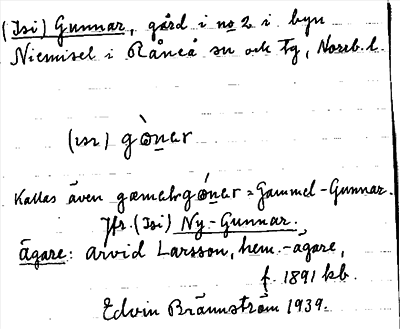 (Isi) Gunnar, gård i no 2 i byn
Niemisel i Råneå sn och tg, Norrb. l.
(ısı) gònar
Kallas även gæmalgónar = Gammel-Gunnar.
Jfr. (Isi) Ny-Gunnar.
Ägare: Arvid Larsson, hem.-ägare,
f. 1891 kb.
Edvin Brännström 1939.